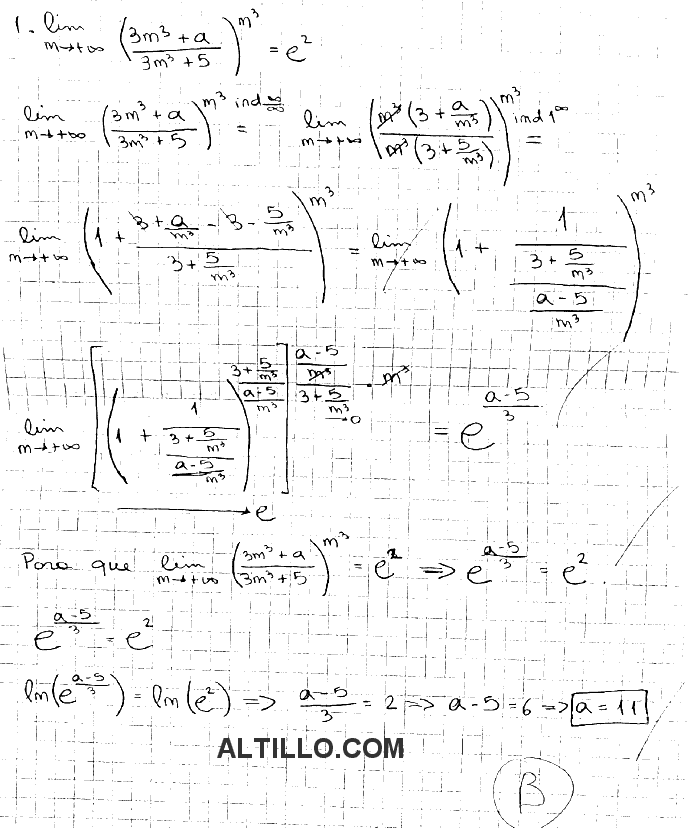 1. lim m→+∞ ((3m³ + a)/(3m³ + 5))^m³ = e²
lim m→+∞ ((3m³ + a)/(3m³ + 5))^m³ ind ∞/∞ = lim m→+∞ ((m³(3 + a/m³))/(m³(3 + 5/m³)))^m³ ind 1^∞ =
lim m→+∞ (1 + (3 + a/m³ - 3 - 5/m³)/(3 + 5/m³))^m³ = lim m→+∞ (1 + 1/((3 + 5/m³)/((a - 5)/m³)))^m³
lim m→+∞ [(1 + 1/((3 + 5/m³)/((a - 5)/m³)))^((3 + 5/m³)/((a - 5)/m³))]^(((a - 5)/m³)/(3 + 5/m³) · m³) = e^((a - 5)/3)
→0
→ e
Para que lim m→+∞ ((3m³ + a)/(3m³ + 5))^m³ = e² ⇒ e^((a - 5)/3) = e².
e^((a - 5)/3) = e²
ln(e^((a - 5)/3)) = ln(e²) ⇒ (a - 5)/3 = 2 ⇒ a - 5 = 6 ⇒ a = 11
ALTILLO.COM
B